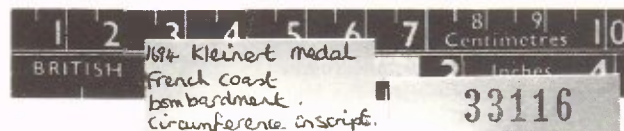 1 2 3 4 5 6 7 8 9 10
Centimetres
BRITISH
2 Inches 4
1694 Kleinert medal
French coast
bombardment.
Circumference inscript.
33116